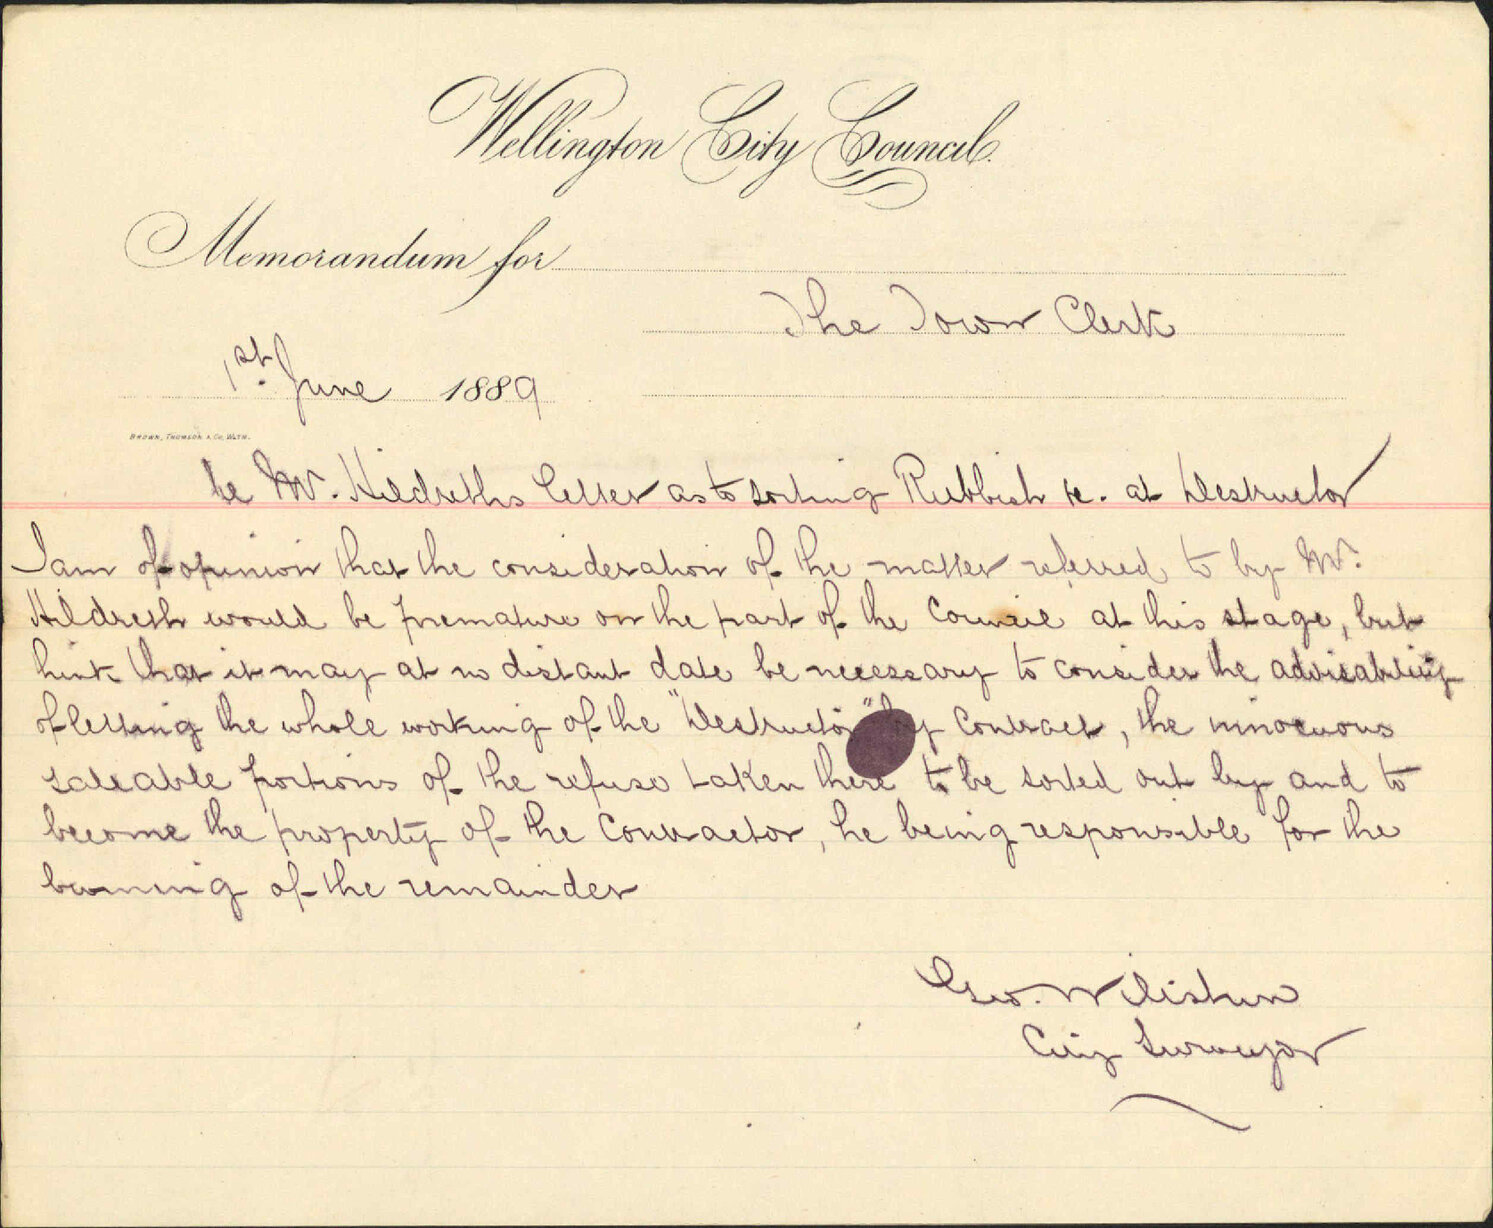 Wellington City Council.
Memorandum for
The Town Clerk
1st. June 1889
BROWN, THOMSON & Co, WGTN.
re Mr. Hildreths letter as to sorting Rubbish &c. at Destructor
I am of opinion that the consideration of the matter referred to by Mr.
Hildreth would be premature on the part of the Council at this stage, but
think that it may at no distant date be necessary to consider the advisability
of letting the whole working of the "Destructor" by Contract, the innocuous
saleable portions of the refuse taken there to be sorted out by and to
become the property of the Contractor, he being responsible for the
burning of the remainder
Geo. Wiliston
City Surveyor